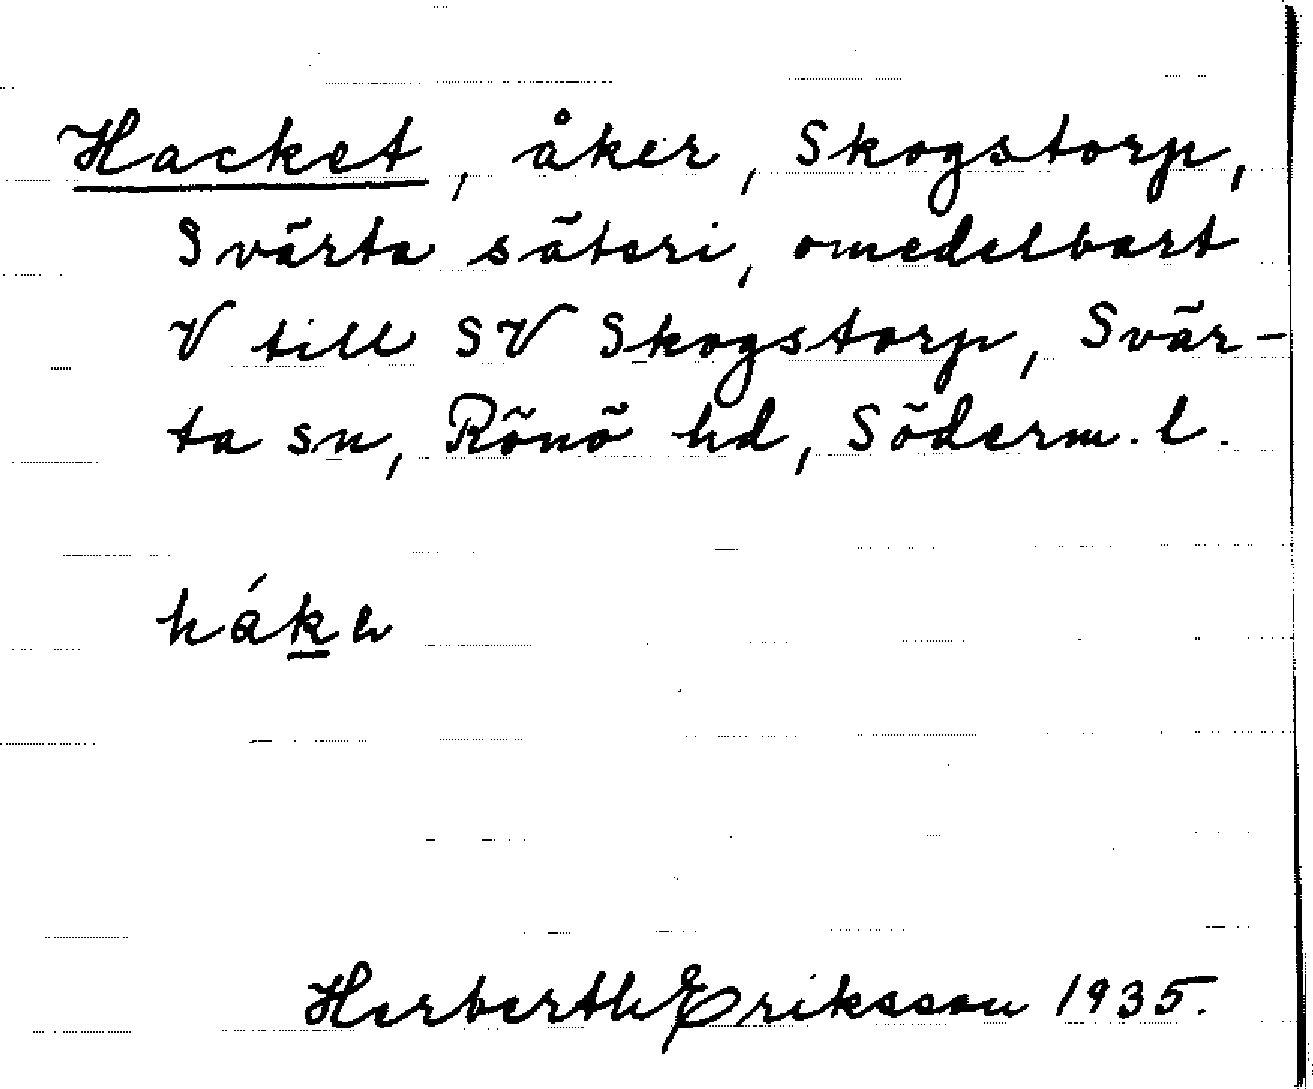 Hacket, åker, Skogstorp,
Svärta säteri, omedelbart
V till SV Skogstorp, Svär-
ta sn, Rönö hd, Söderm. l.
Herberth Eriksson 1935.